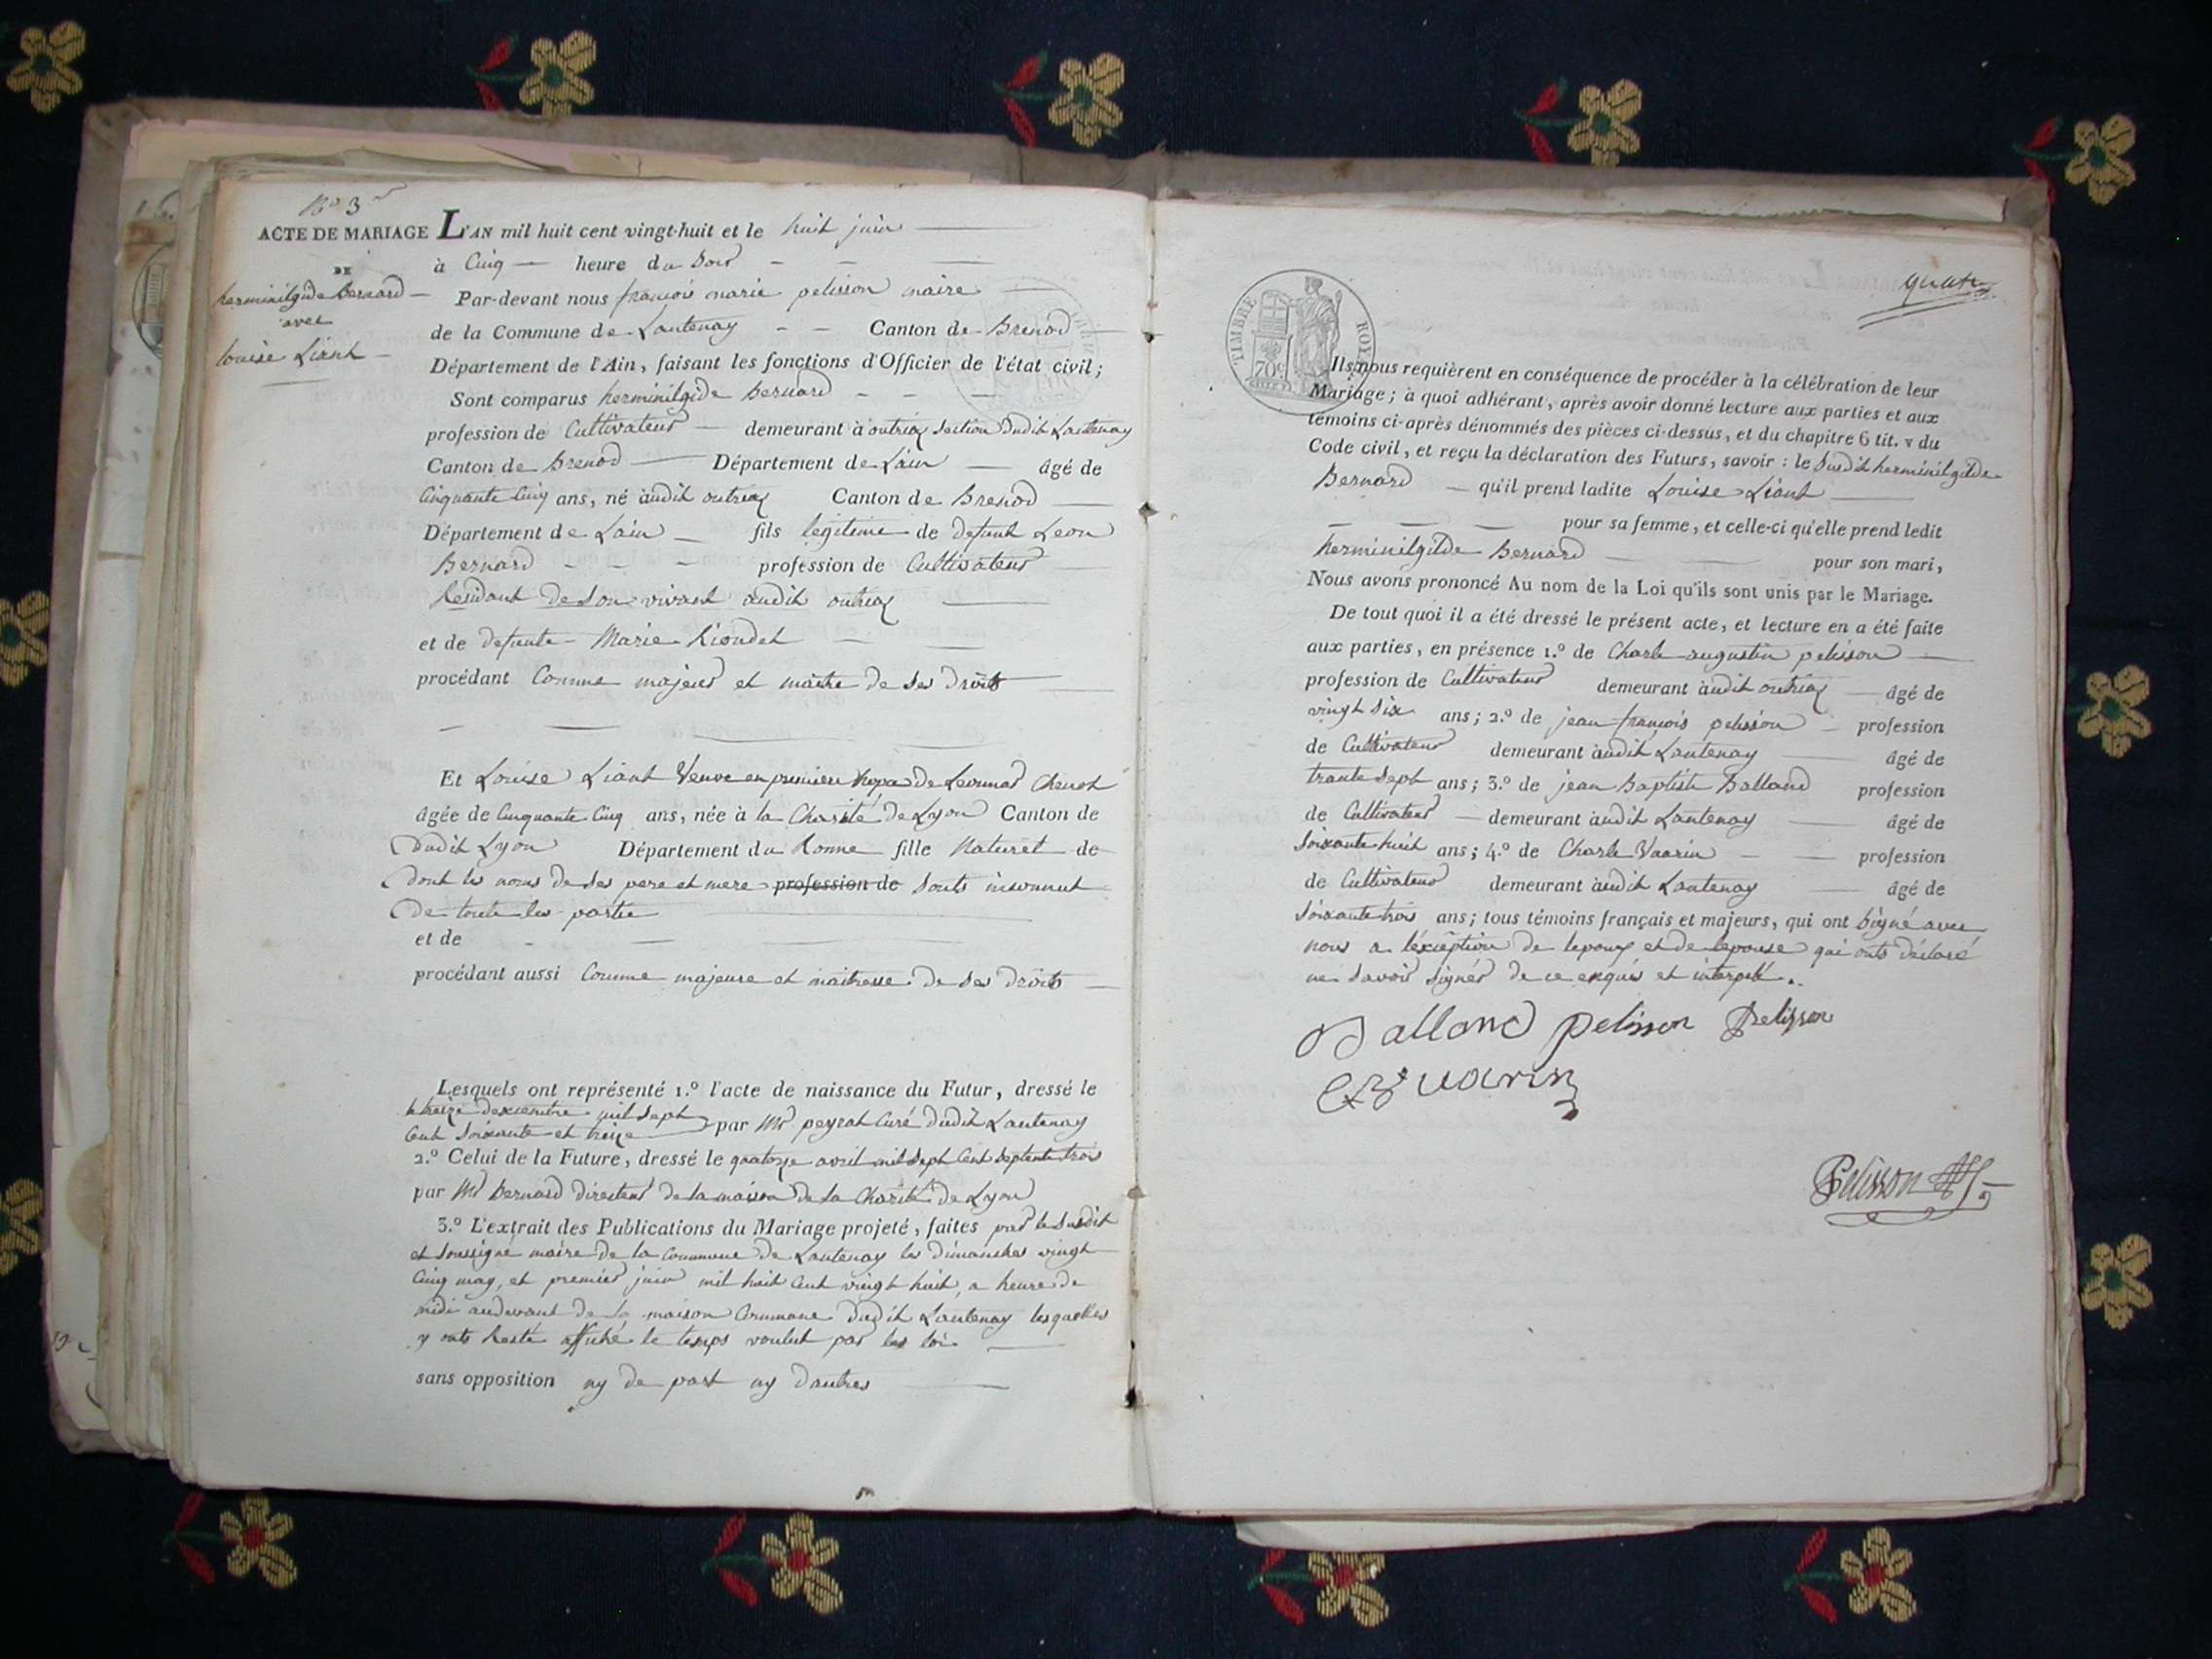 No 3
ACTE DE MARIAGE
DE
herminilgide Bernard
avec
louise Liant
L'AN mil huit cent vingt-huit et le huit juin
à Cinq heure du Soir
Par-devant nous françois marie pelisson maire
de la Commune de Lantenay Canton de Brenod
Département de l'Ain, faisant les fonctions d'Officier de l'état civil;
Sont comparus herminilgide Bernard
profession de Cultivateur demeurant à outriaz section dudit Lantenay
Canton de Brenod Département de L'ain âgé de
Cinquante Cinq ans, né audit outriaz Canton de Brenod
Département de L'ain fils legitime de defunt Leon
Bernard profession de Cultivateur
Residant de son vivant audit outriaz
et de defunte Marie Riondet
procédant Comme majeur et maitre de ses droits
Et Louise Liant Veuve en premiere de Leonnard Chenot
âgée de Cinquante Cinq ans, née à la Charité de Lyon Canton de
Dudit Lyon Département du Ronne fille Naturel de
Dont les noms de ses pere et mere profession de sonts inconnut
De toute les partie
et de
procédant aussi Comme majeure et maitresse de ses droits
Lesquels ont représenté 1.º l'acte de naissance du Futur, dressé le
le treize dexcembre mil sept
Cent soixante et treize par Mr peyrat Curé dudit Lantenay
2.º Celui de la Future, dressé le quatorze avril mil sept Cent septente trois
par Mr Bernard directeur de la maison de la Charité de Lyon
3.º L'extrait des Publications du Mariage projeté, faites par le susdit
et soussigné maire de la Commune de Lantenay les dimanches vingt
Cinq may, et premier juin mil huit Cent vingt huit, a heure de
midi audevant de la maison Commune dudit Lantenay lesquelles
y onts Resté affiché le temps voulut par les loi
sans opposition ny de part ny dautres
quatre
TIMBRE ROYAL
70 c
Ils nous requièrent en conséquence de procéder à la célébration de leur
Mariage; à quoi adhérant, après avoir donné lecture aux parties et aux
témoins ci-après dénommés des pièces ci-dessus, et du chapitre 6 tit. v du
Code civil, et reçu la déclaration des Futurs, savoir : le Susdit herminilgilde
Bernard qu'il prend ladite Louise Liant
pour sa femme, et celle-ci qu'elle prend ledit
herminilgilde Bernard pour son mari,
Nous avons prononcé Au nom de la Loi qu'ils sont unis par le Mariage.
De tout quoi il a été dressé le présent acte, et lecture en a été faite
aux parties, en présence 1.º de Charle augustin pelisson
profession de Cultivateur demeurant audit outriaz âgé de
vingt six ans; 2.º de jean françois pelisson profession
de Cultivateur demeurant audit Lantenay âgé de
trante sept ans; 3.º de jean Baptiste Balland profession
de Cultivateur demeurant audit Lantenay âgé de
soixante huit ans; 4.º de Charle Vaarin profession
de Cultivateur demeurant audit Lantenay âgé de
soixante trois ans; tous témoins français et majeurs, qui ont signé avec
nous a l'éxception de lepoux et de lepouse qui onts déclaré
ne savoir signer de ce enquis et interpelé.
Balland pelisson Pelisson
varin
Pelisson